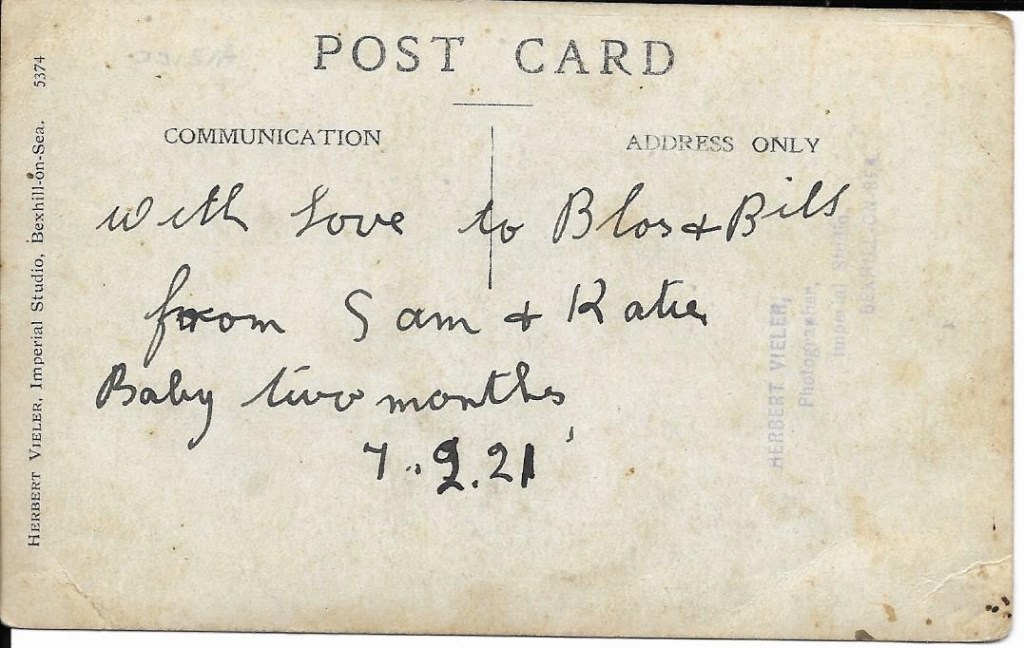 POST CARD
COMMUNICATION
ADDRESS ONLY
With Love to Blos & Bill
from Sam & Katie
Baby two months
7.9.21
HERBERT VIELER, Imperial Studio, Bexhill-on-Sea. 5374
HERBERT VIELER,
Photographer,
Imperial Studio,
BEXHILL-ON-SEA